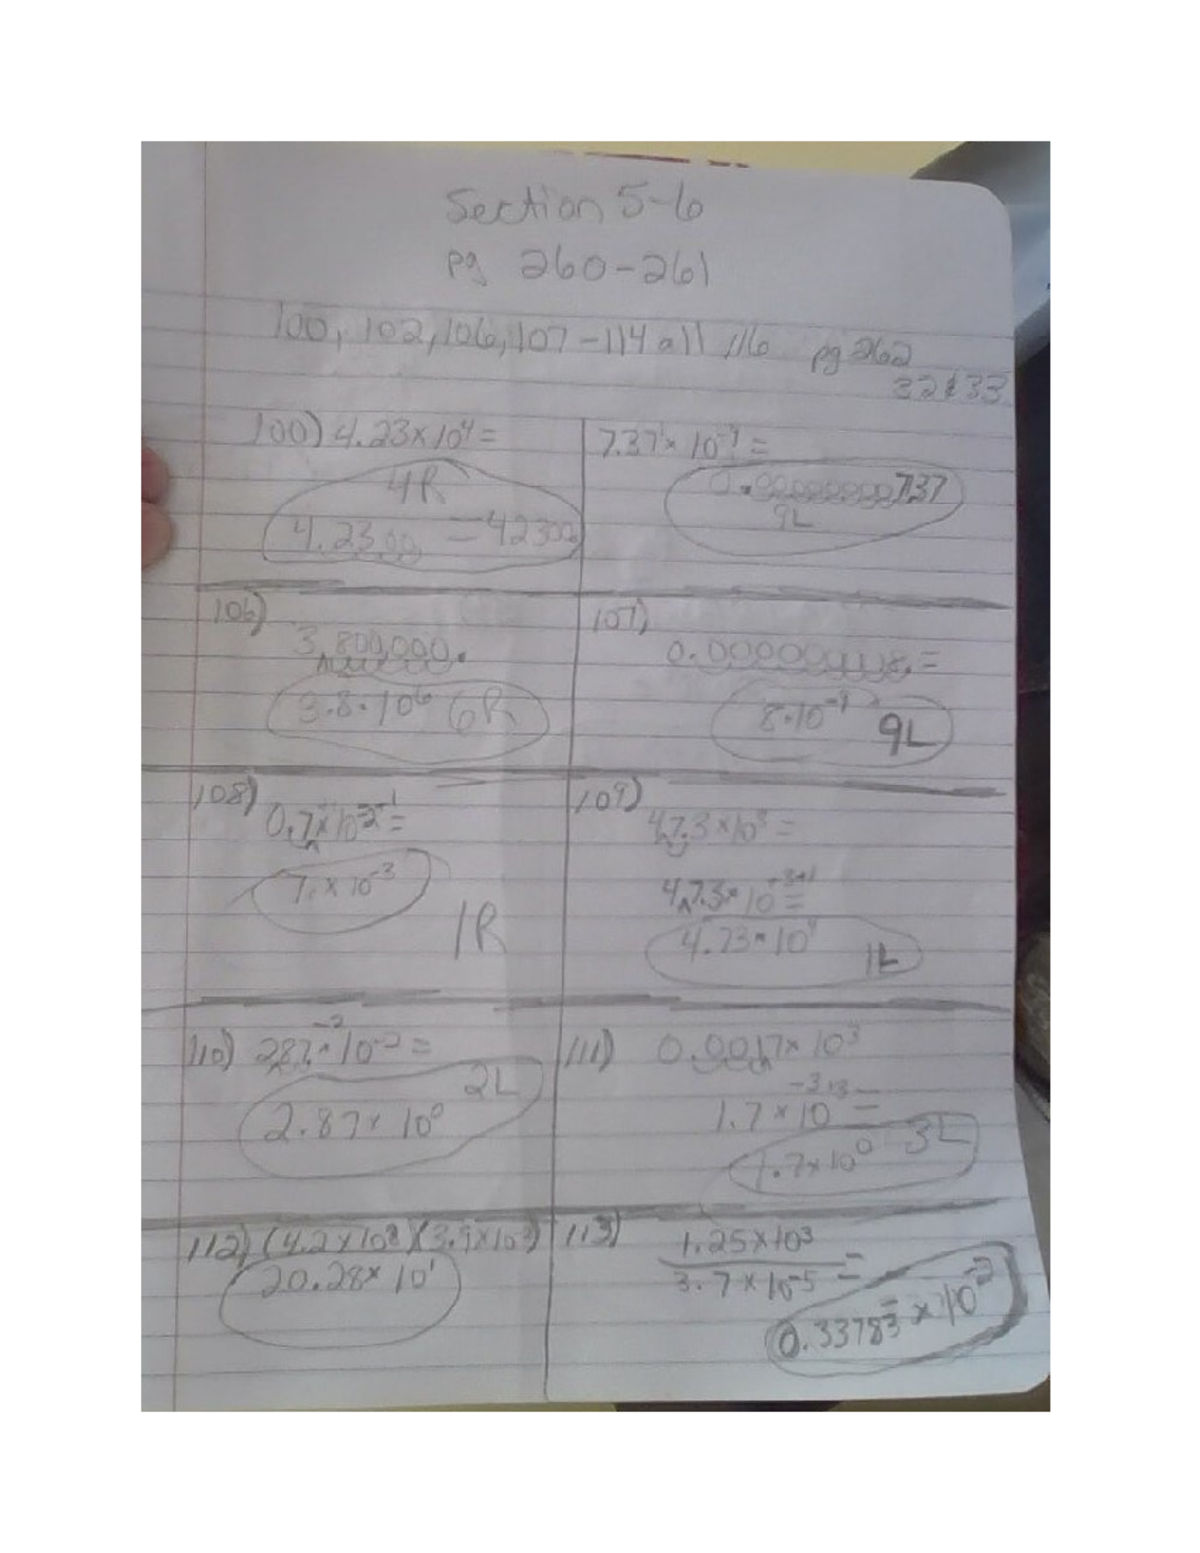 Section 5-6
pg 260-261
100, 102, 106, 107-114 all 116 pg 262
32 & 33
100) 4.23x10⁴ =
4R
4.2300 = 42300
7.37 x 10⁻⁹ =
0.00000000737
9L
106)
3,800,000.
3.8 · 10⁶ 6R
107)
0.000000008 =
8·10⁻⁹ 9L
108)
0.7x10⁻²⁻¹ =
7. x 10⁻³
1R
109)
47.3 x 10³ =
47.3 x 10³⁺¹ =
4.73 x 10⁴ 1L
110) 287 x 10⁻² =
2L
2.87 x 10⁰
111) 0.0017 x 10³
1.7 x 10⁻³⁺³ =
1.7 x 10⁰ 3L
112)
20.28 x 10¹
113)
1.25 x 10³
3.7 x 10⁻⁵ =
x 10⁻²